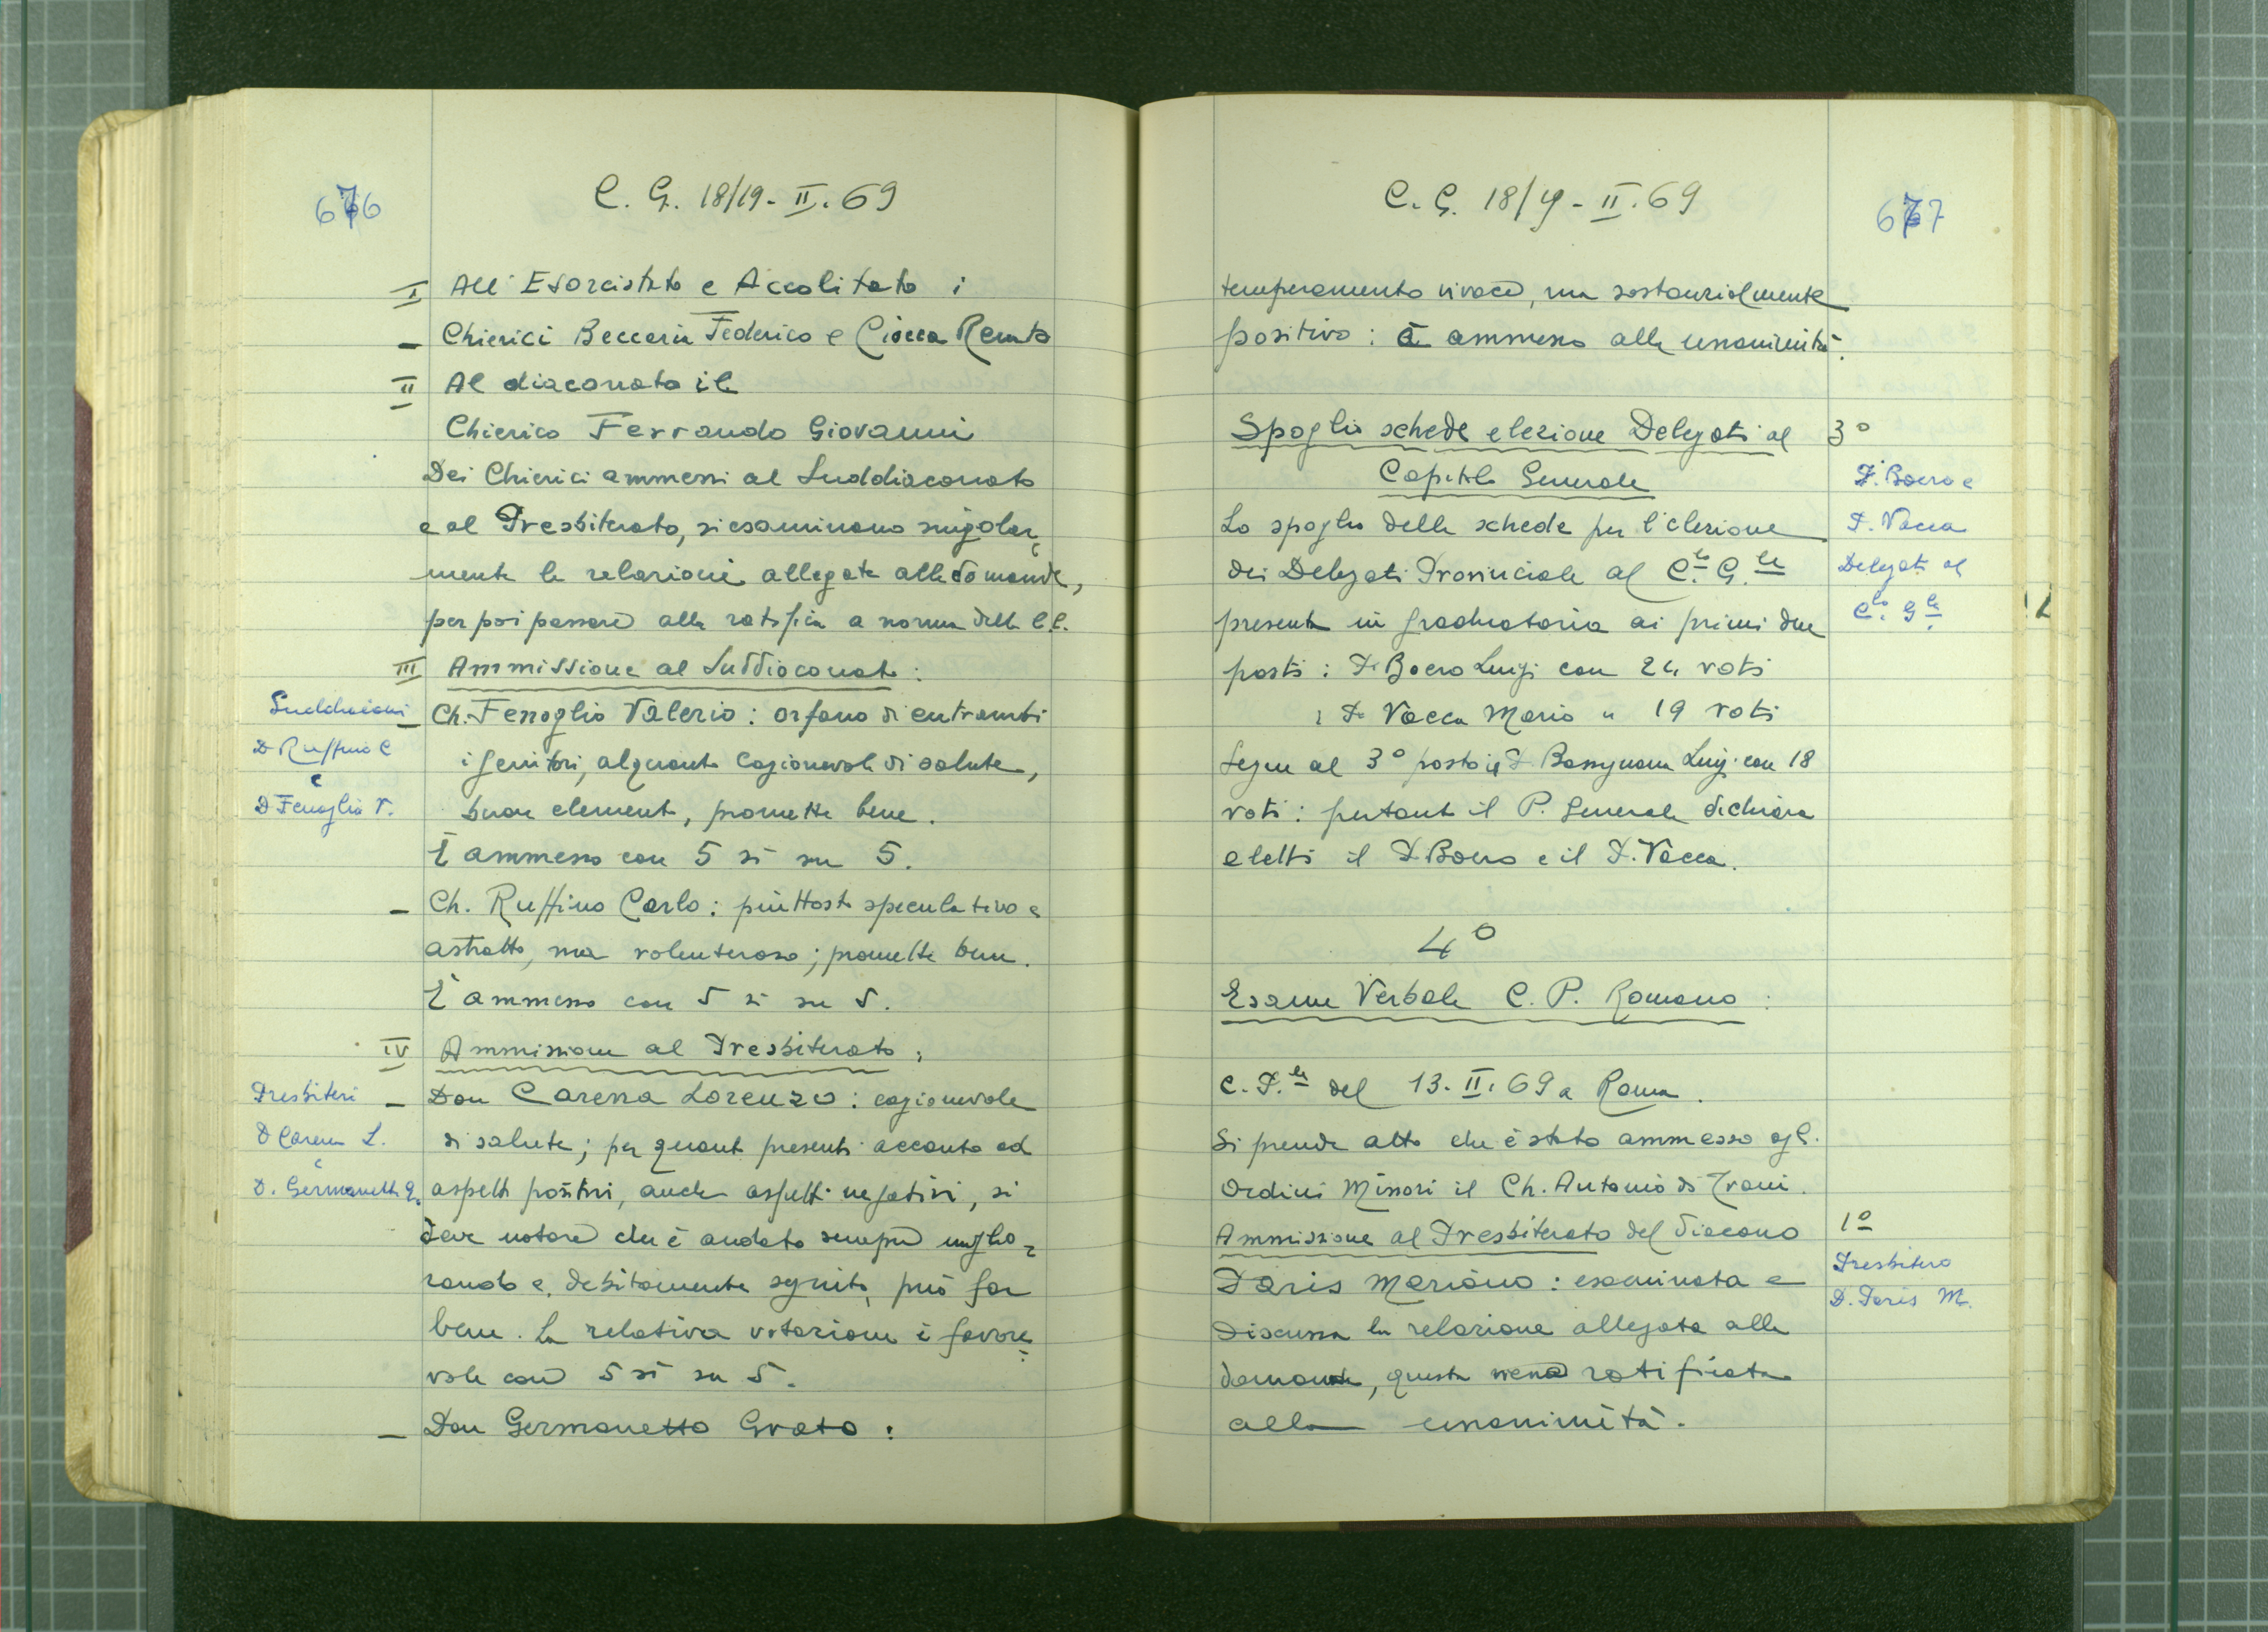 676
C. G. 18/19 - II. 69
I All'Esorcistato e Accolitato i
- Chierici Beccaria Federico e Ciocca Renato
II Al diaconato il
Chierico Ferrando Giovanni
Dei Chierici ammessi al Suddiaconato
e al Presbiterato, si esaminano singolar=
mente le relazioni allegate alle domande,
per poi passare alla ratifica a norma delle C.C.
III Ammissione al Suddiaconato:
Suddiaconi
D Ruffino C
e
D Fenoglio V.
- Ch. Fenoglio Valerio: orfano di entrambi
i genitori, alquanto cagionevole di salute,
buon elemento, promette bene.
È ammesso con 5 sì su 5.
- Ch. Ruffino Carlo: piuttosto speculativo e
astratto, ma volenteroso; promette bene.
È ammesso con 5 sì su 5.
IV Ammissione al Presbiterato:
Presbiteri
D Carena L.
e
D. Germanetto G.
- Don Carena Lorenzo: cagionevole
di salute; per quanto presenti accanto ad
aspetti positivi, anche aspetti negativi, si
deve notare che è andato sempre miglio=
rando e, debitamente seguito, può far
bene. La relativa votazione è favore=
vole con 5 sì su 5.
- Don Germanetto Grato:
C. G. 18/19 - II. 69
677
temperamento vivace, ma sostanzialmente
positivo: è ammesso alla unanimità.
Spoglio schede elezione Delegati al 3°
Capitolo Generale
D. Boero e
D. Vacca
Delegati al
C.lo G.le
Lo spoglio delle schede per l'elezione
dei Delegati Provinciale al C.lo G.le
presenta in graduatoria ai primi due
posti: D. Boero Luigi con 24 voti
: D. Vacca Mario " 19 voti
Segue al 3° posto il D. Bassignana Luigi con 18
voti: pertanto il P. Generale dichiara
eletti il D. Boero e il D. Vacca.
4°
Esame Verbale C. P. Romano:
C. P.le del 13. II. 69 a Roma.
Si prende atto che è stato ammesso agl.
Ordini Minori il Ch. Antonio di Trani.
Ammissione al Presbiterato del diacono 1°
Presbitero
D. Paris M.
Paris Mariano: esaminata e
discussa la relazione allegata alla
domanda, questa viene ratificata
alla unanimità.